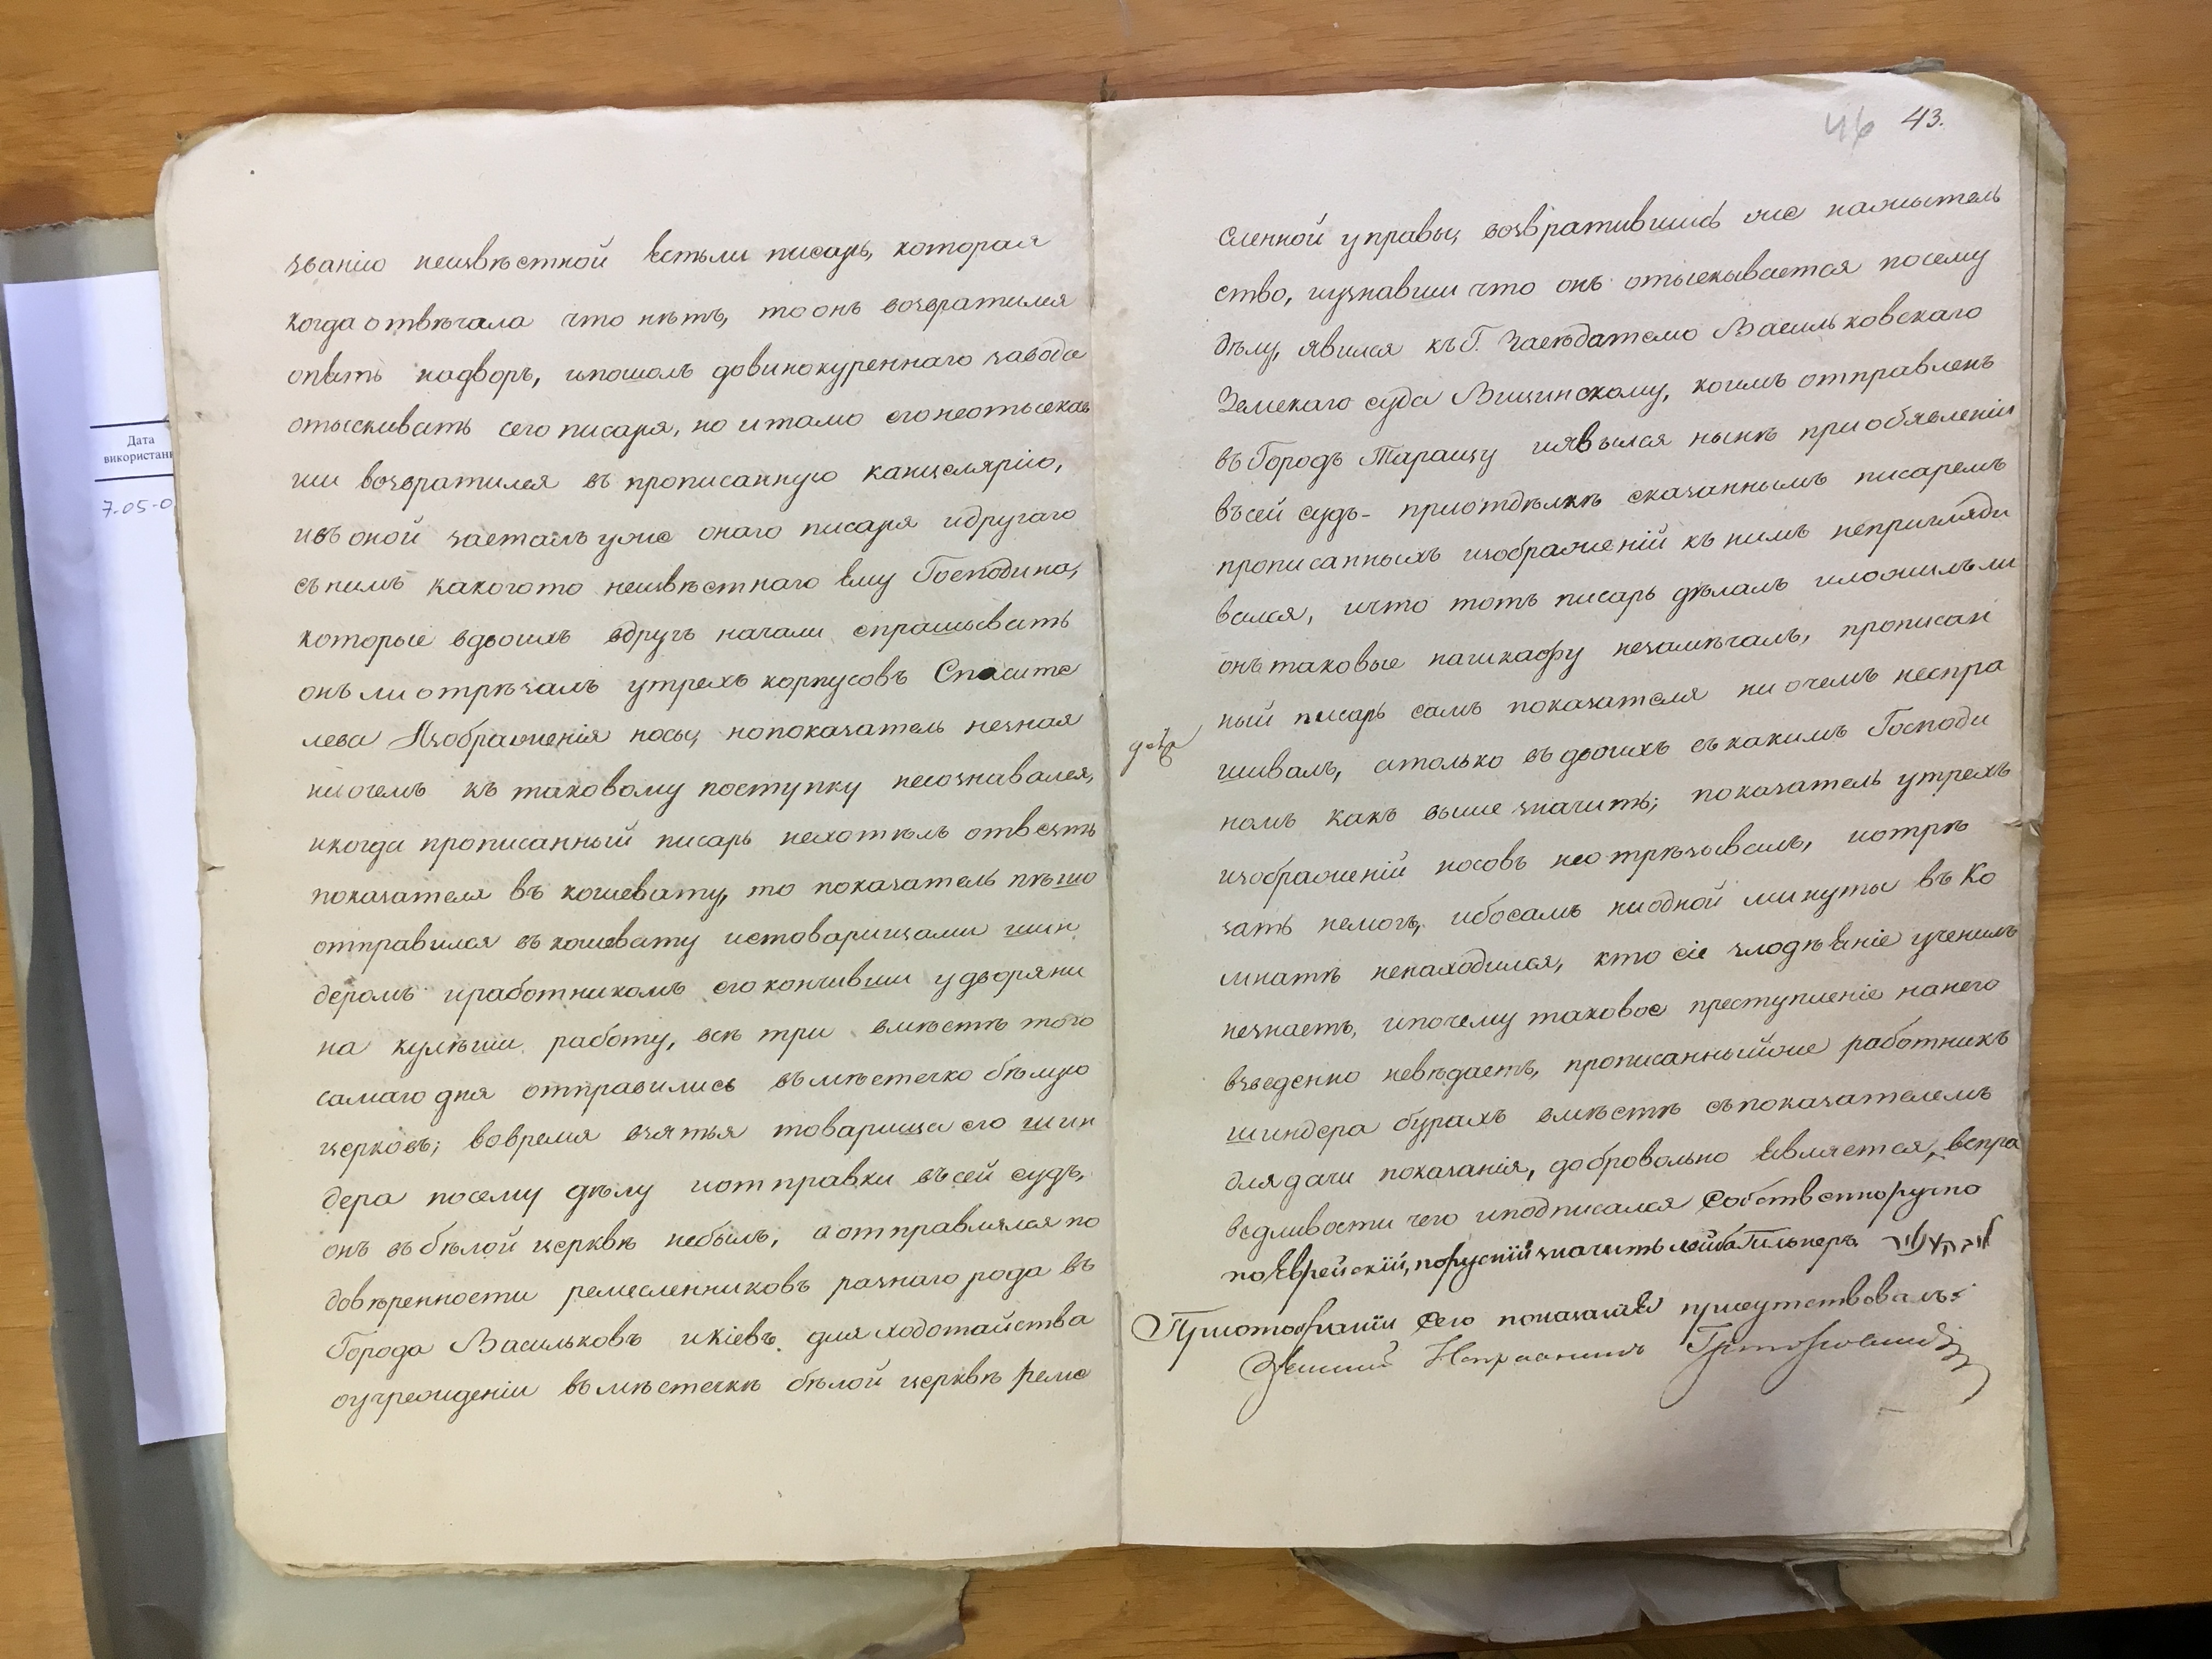 Дата
використан
7-05-0
званію неизвѣстной ѣстьли писарь, которая
когда отвѣчала что нѣтъ, то онъ возвратился
опять надворъ, ипошолъ довинокуреннаго завода
отыскивать сего писаря, но итамо его неотыскав
ши возвратился въ прописанную канцелярію,
ивъ оной засталъ уже онаго писаря идругаго
съ нимъ какогото неизвѣстнаго ему Господина,
которые вдвоихъ вдругъ начали спрашывать
онъ ли отрѣзалъ утрехъ корпусовъ Спасите
лева Изображенія носы, нопоказатель незная
ниочемъ къ таковому поступку несознавался,
икогда прописанный писарь нехотѣлъ отвезть
показателя въ кошевату, то показатель пѣшо
отправился въ кошевату истоварищами шин
деромъ иработникомъ его кончивши удворяни
на кулѣши работу, всѣ три вмѣстѣ того
самаго дня отправились вмѣстечко бѣлую
церковь; вовремя взятья товарища его шин
дера посему дѣлу иотправки въсей судъ,
онъ въ бѣлой церквѣ небылъ, а отправлялся по
довѣренности ремесленниковъ разнаго рода въ
Города Васильковъ икіевъ для ходотайства
оучрежденіи вмѣстечкѣ бѣлой церквѣ реме
46 43.
сленной управы, возвратившись же нажытель
ство, иузнавши что онъ отыскывается посему
дѣлу, явился къ Г. Засѣдателю Васильковскаго
Земскаго суда Вишинскому, коимъ отправленъ
въ Городъ Таращу иявылся нынѣ приобявленіи
въсей судъ - приотдѣлкѣ сказаннымъ писаремъ
прописанныхъ изображеній къ нимъ непригляды
вался, ичто тотъ писарь дѣлалъ иложилъли
онъ таковые нашкафу незамѣчалъ, прописан
ный писарь самъ показателя ниочемъ неспра
шивалъ, атолько въ двоихъ съ какимъ Господи
номъ какъ выше значитъ; показатель утрехъ
изображеній носовъ неотрѣзывалъ, иотрѣ
зать немогъ, ибосамъ ниодной минуты въ Ко
мнатѣ ненаходился, кто сіе злодѣяніе учинилъ
незнаетъ, ипочему таковое преступленіе нанего
взведенно невѣдаетъ, прописанныйже работникъ
шиндера бурахъ вмѣстѣ съпоказателемъ
длядачи показанія, добровольно является, вспра
ведливости чего иподписался Собственноручно
поЕврейскій, порускій значитъ лейба Гильнеръ
Приотобраніи Сего показанія присутствовалъ:
Земскій Исправникъ